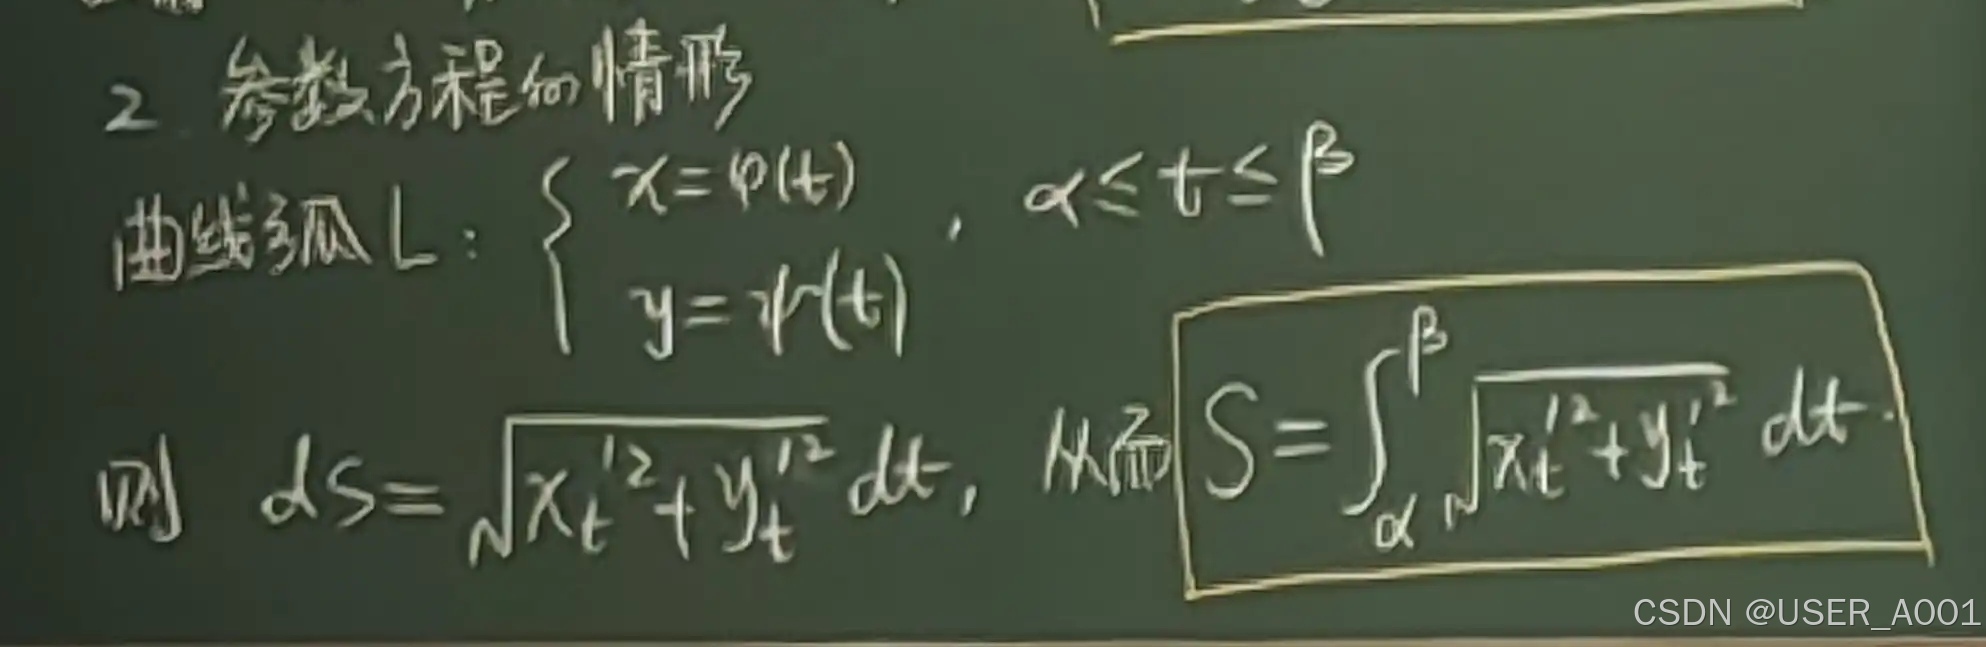 2 参数方程的情形
曲线弧 L: { x=φ(t) , α≤t≤β
y=ψ(t)
则 ds=√(x_t'²+y_t'²) dt, 从而 S=∫_α^β √(x_t'²+y_t'²) dt.
CSDN @USER_A001